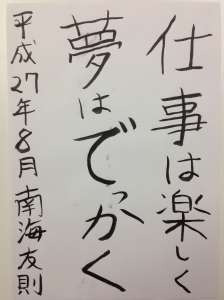 仕事は楽しく
夢はでっかく
平成27年8月 南海友則